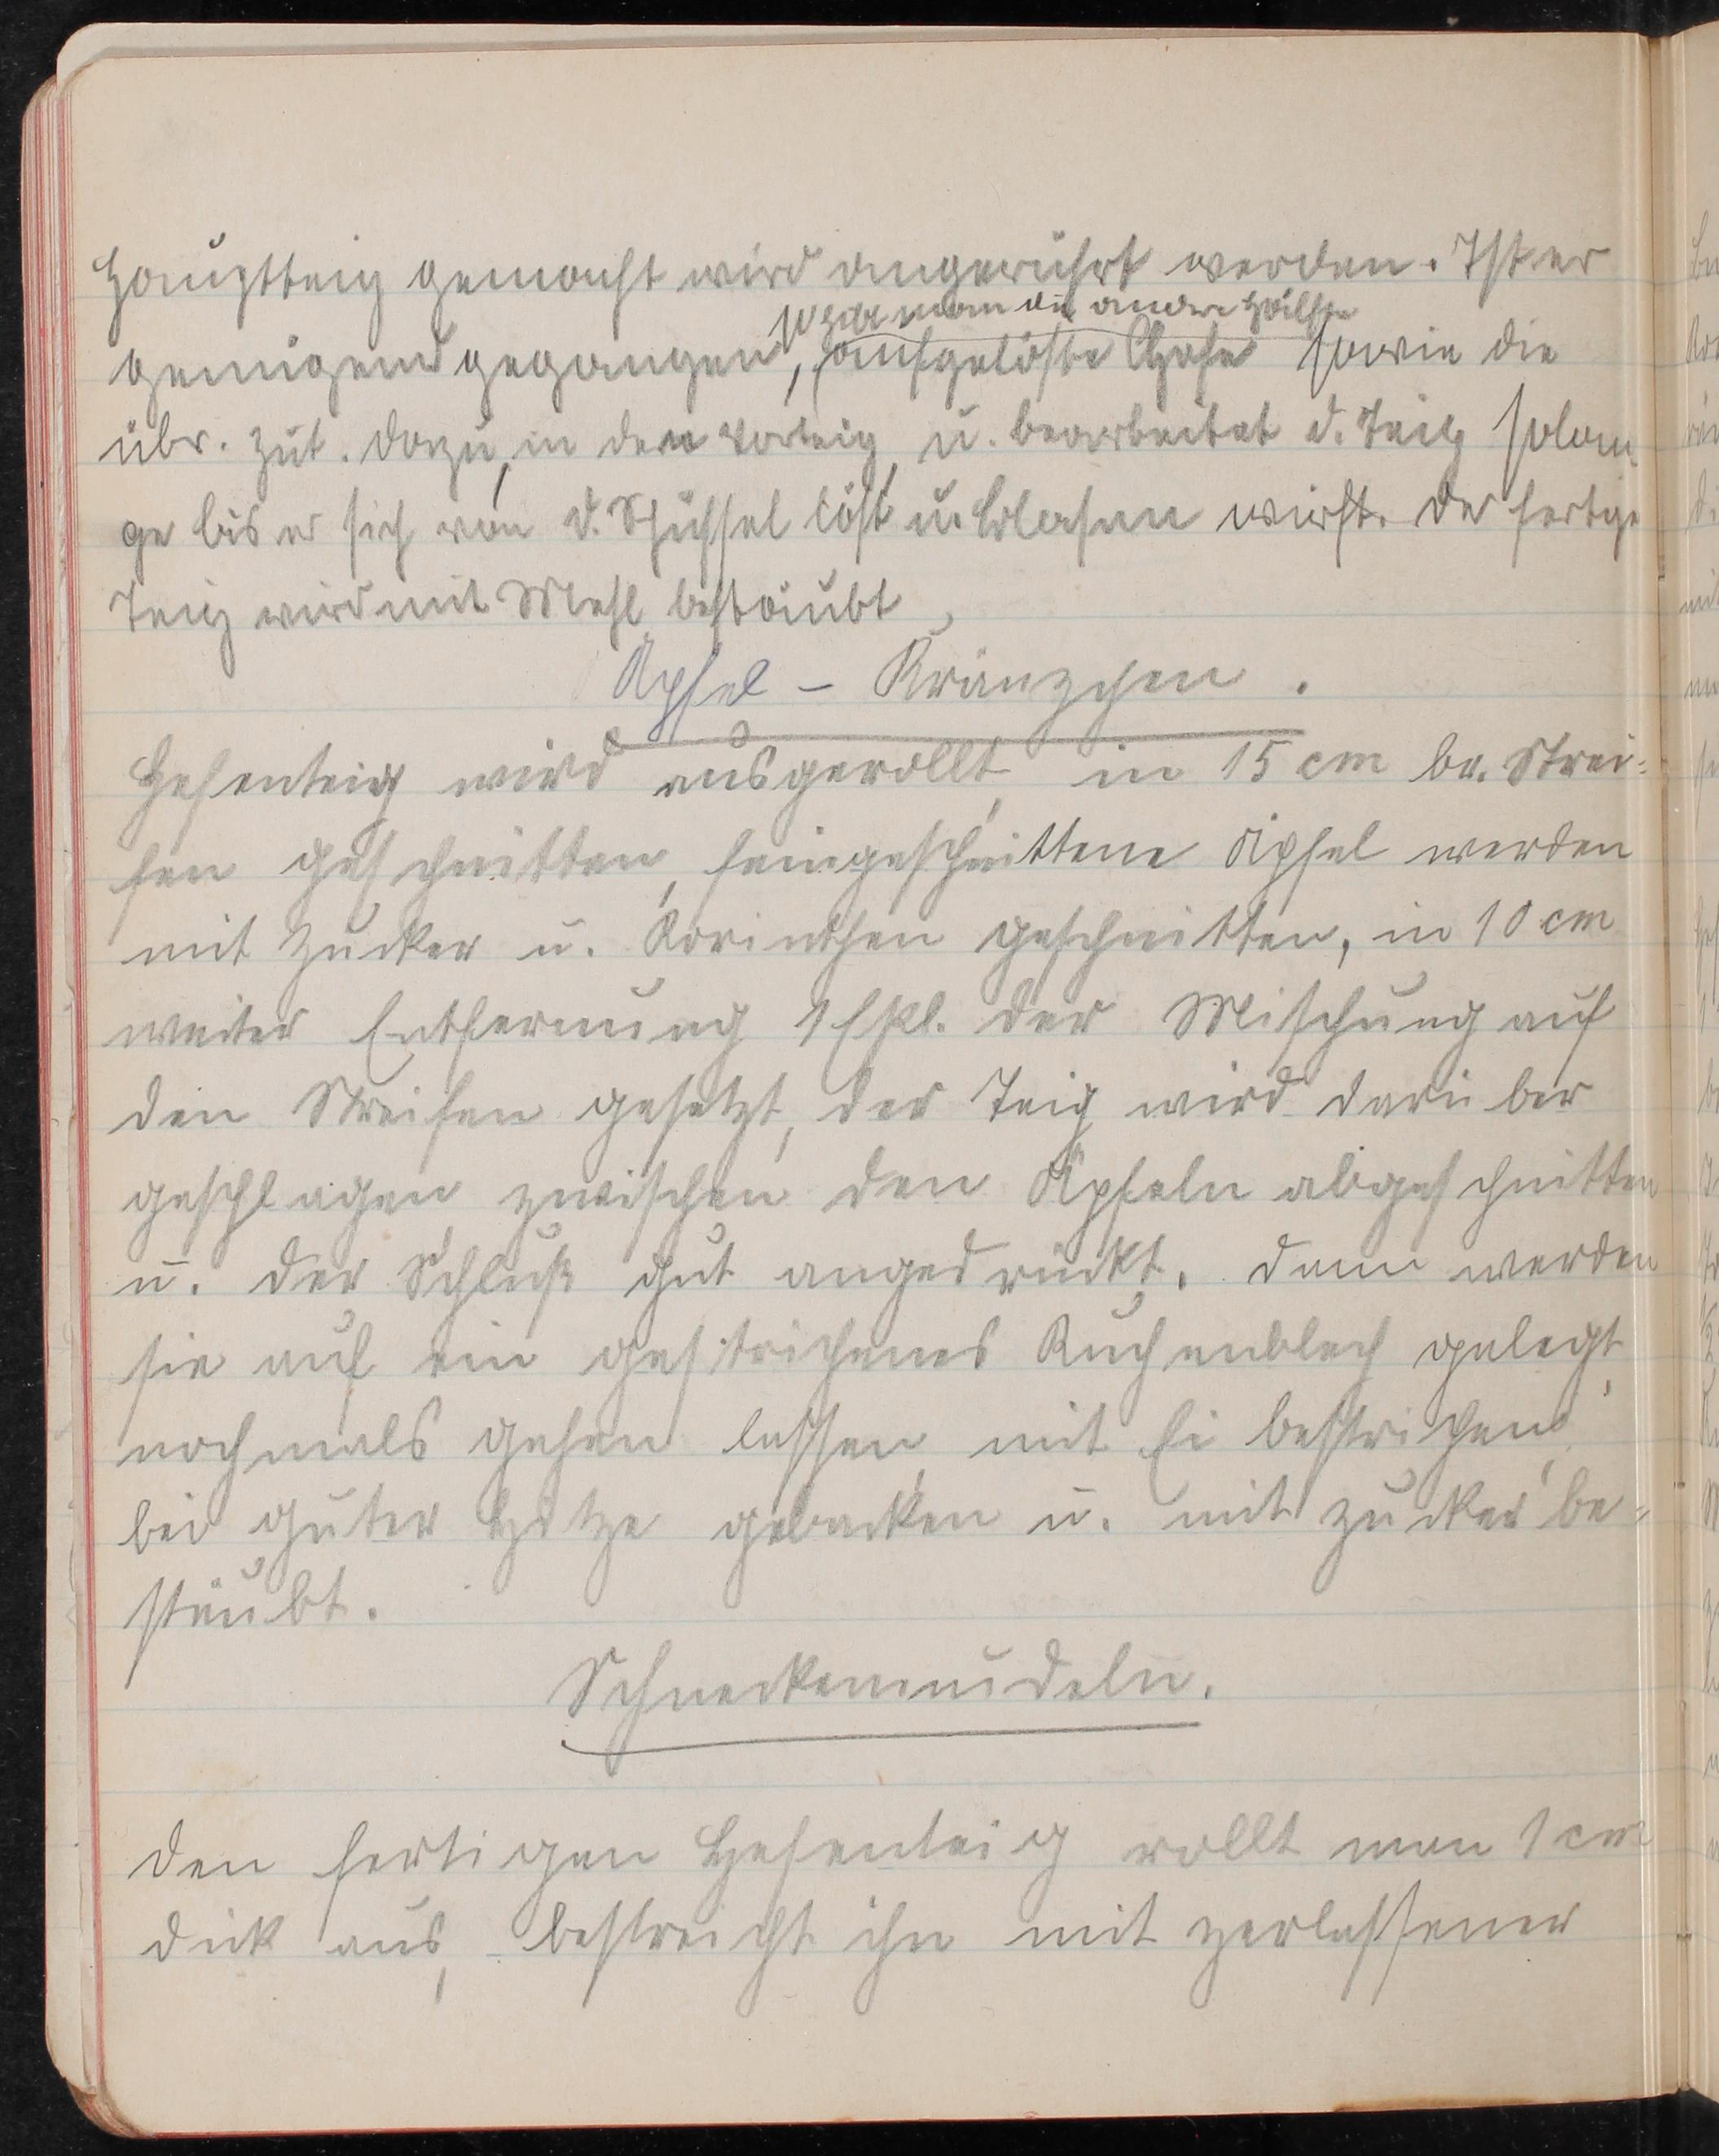 Hauptteig gemacht wird angerührt werden. Ist er
man die andre Hälfte
genügend gegangen, aufgelöste Hefe sowie die
übr. Zut. dazu, in den Vorteig, u. bearbeitet d. Teig solan-
ge bis er sich von d. Schüssel löst u. Blasen wirft. Der fertige
Teig wird mit Mehl bestäubt,
Äpfel - Kränzchen.
Hefenteig wird ausgerollt, in 15 cm br. Strei-
fen geschnitten, feingeschnittene Äpfel werden
mit Zucker u. Korinthen geschnitten, in 10 cm
weiter Entfernung 1 Eßl. der Mischung auf
den Streifen gesetzt, der Teig wird darüber
geschlagen zwischen den Äpfeln abgeschnitten
u. der Schluß gut angedrückt. Dann werden
sie auf ein gestrichenes Kuchenblech gelegt,
nochmals gehen lassen, mit Ei bestrichen,
bei guter Hitze gebacken u. mit Zucker be-
stäubt.
Schneckennudeln.
Den fertigen Hefenteig rollt man 1 cm
dick aus, bestreicht ihn mit zerlassener